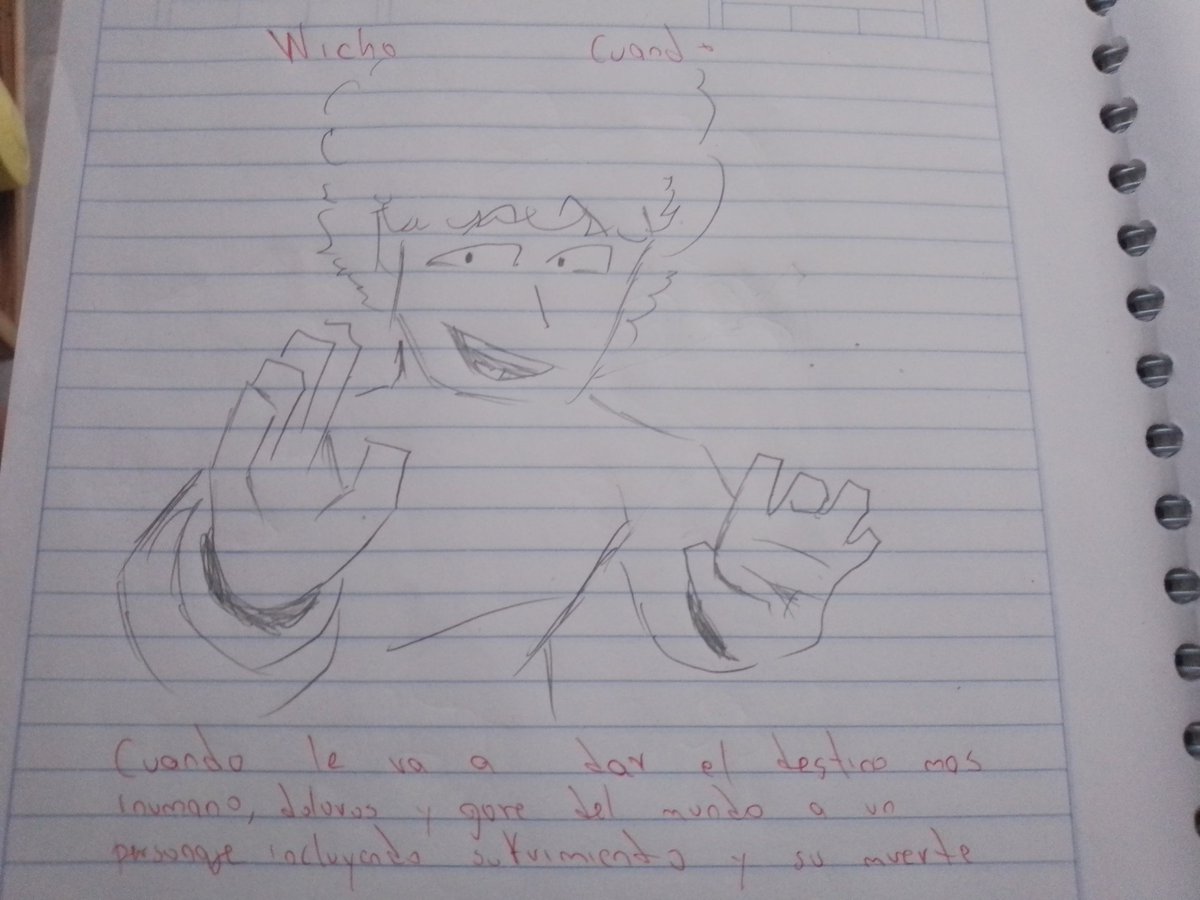 Wicho Cuando
Cuando le va a dar el destino mas
inumano, doloros y gore del mundo a un
personaje incluyendo sufrimiento y su muerte